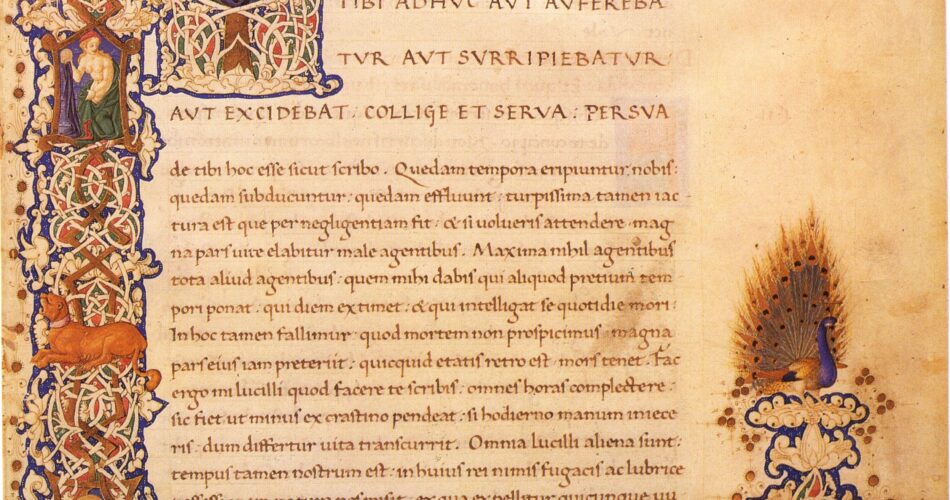 TIBI ADHUC AUT AUFEREBA
TUR AUT SURRIPIEBATUR :
AUT EXCIDEBAT : COLLIGE ET SERVA : PERSUA
de tibi hoc esse sicut scribo . Quedam tempora eripiuntur nobis :
quedam subducuntur : quedam effluunt : turpissima tamen iac
tura est que per negligentiam fit : & si volueris attendere : mag
na pars vite elabitur male agentibus . Maxima nihil agentibus
tota aliud agentibus : quem mihi dabis qui aliquod pretium tem
pori ponat : qui diem extimet : & qui intelligat se quotidie mori :
In hoc tamen fallimur : quod mortem non prospicimus : magna
pars eius iam preteriit : quicquid etatis retro est : mors tenet : Fac
ergo mi lucilli quod facere te scribis : omnes horas complectere :
sic fiet ut minus ex crastino pendeat : si hodierno manum iniece
ris : dum differtur vita transcurrit . Omnia lucilli aliena sunt :
tempus tamen nostrum est : in huius rei nimis fugacis ac lubrice